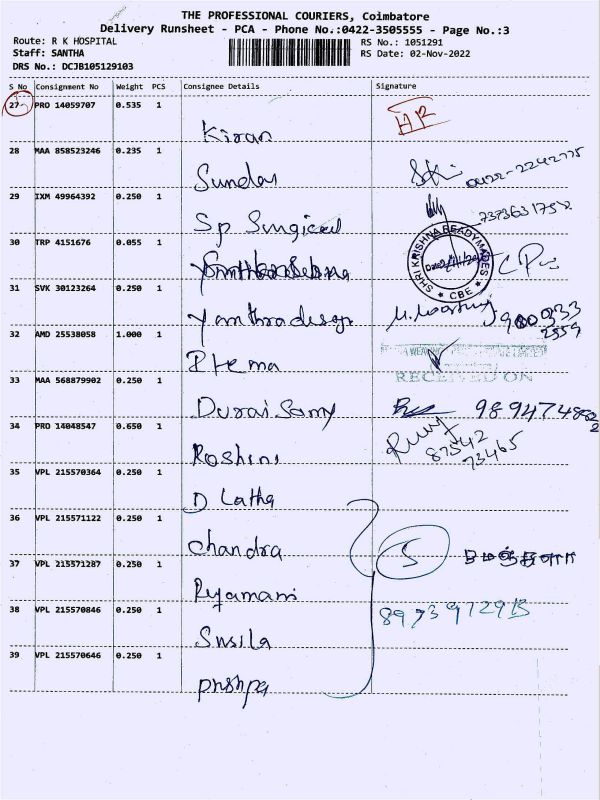 THE PROFESSIONAL COURIERS, Coimbatore
Delivery Runsheet - PCA - Phone No.:0422-3505555 - Page No.:3
Route: R K HOSPITAL
Staff: SANTHA
DRS No.: DCJB105129103
RS No.: 1051291
RS Date: 02-Nov-2022
S No Consignment No Weight PCS Consignee Details Signature
27 PRO 14059707 0.535 1
Kiran
28 MAA 858523246 0.235 1
Sundar 0422-2242775
29 IXM 49964392 0.250 1
Sp Surgical
30 TRP 4151676 0.055 1
SHRI KRISHNA READYMADES
CBE
31 SVK 30123264 0.250 1
32 AMD 25538058 1.000 1
Prema
RECEIVED ON
33 MAA 568879902 0.250 1
Durai Samy
34 PRO 14048547 0.650 1
Roshini 87542
73465
35 VPL 215570364 0.250 1
D Latha
36 VPL 215571122 0.250 1
Chandra 5
37 VPL 215571287 0.250 1
38 VPL 215570846 0.250 1
Susila
39 VPL 215570646 0.250 1
Pushpa